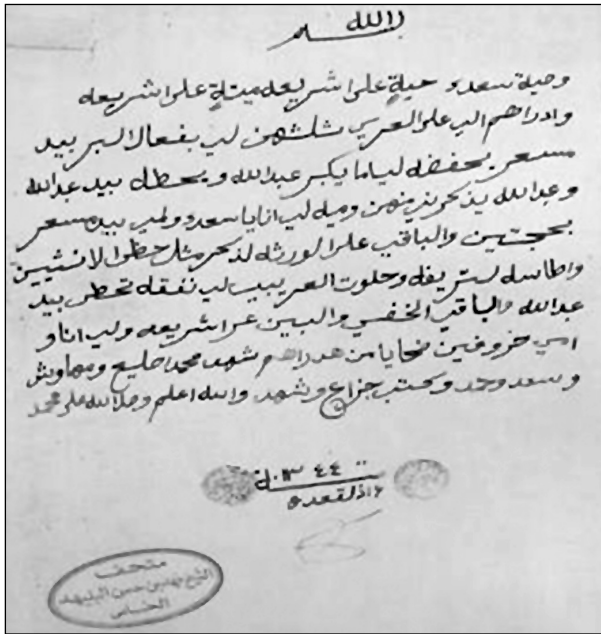 الله
وصية سعده حية على شريعه ميتة على شريعه
وادراهم الي على العربي ثلثهن لي بفعال البر بيد
مسعر يحفضه لياما يكبر عبدالله ويحطه بيد عبدالله
وعبدالله يذكرني منهن وميه لي انا يا سعده ولمي بيد مسعر
بحجتين والباقي على الورثه لذكر مثل حظ الانثيين
واطاسه لشريفه وحلوت العر لي نفقه تحطى بيد
عبدالله والباقي الخفي والبين عراشريعه ولي انا و
امي خروفين ضحايا من هدراهم شهد محمد صليع ومهاوش
وسعد وحمد وكتب جزاع وشهد والله اعلم وصلا الله على محمد
١٣٤٤
١٦ ذلقعده
متحف
الشيخ فهد بن حسن
الخاص